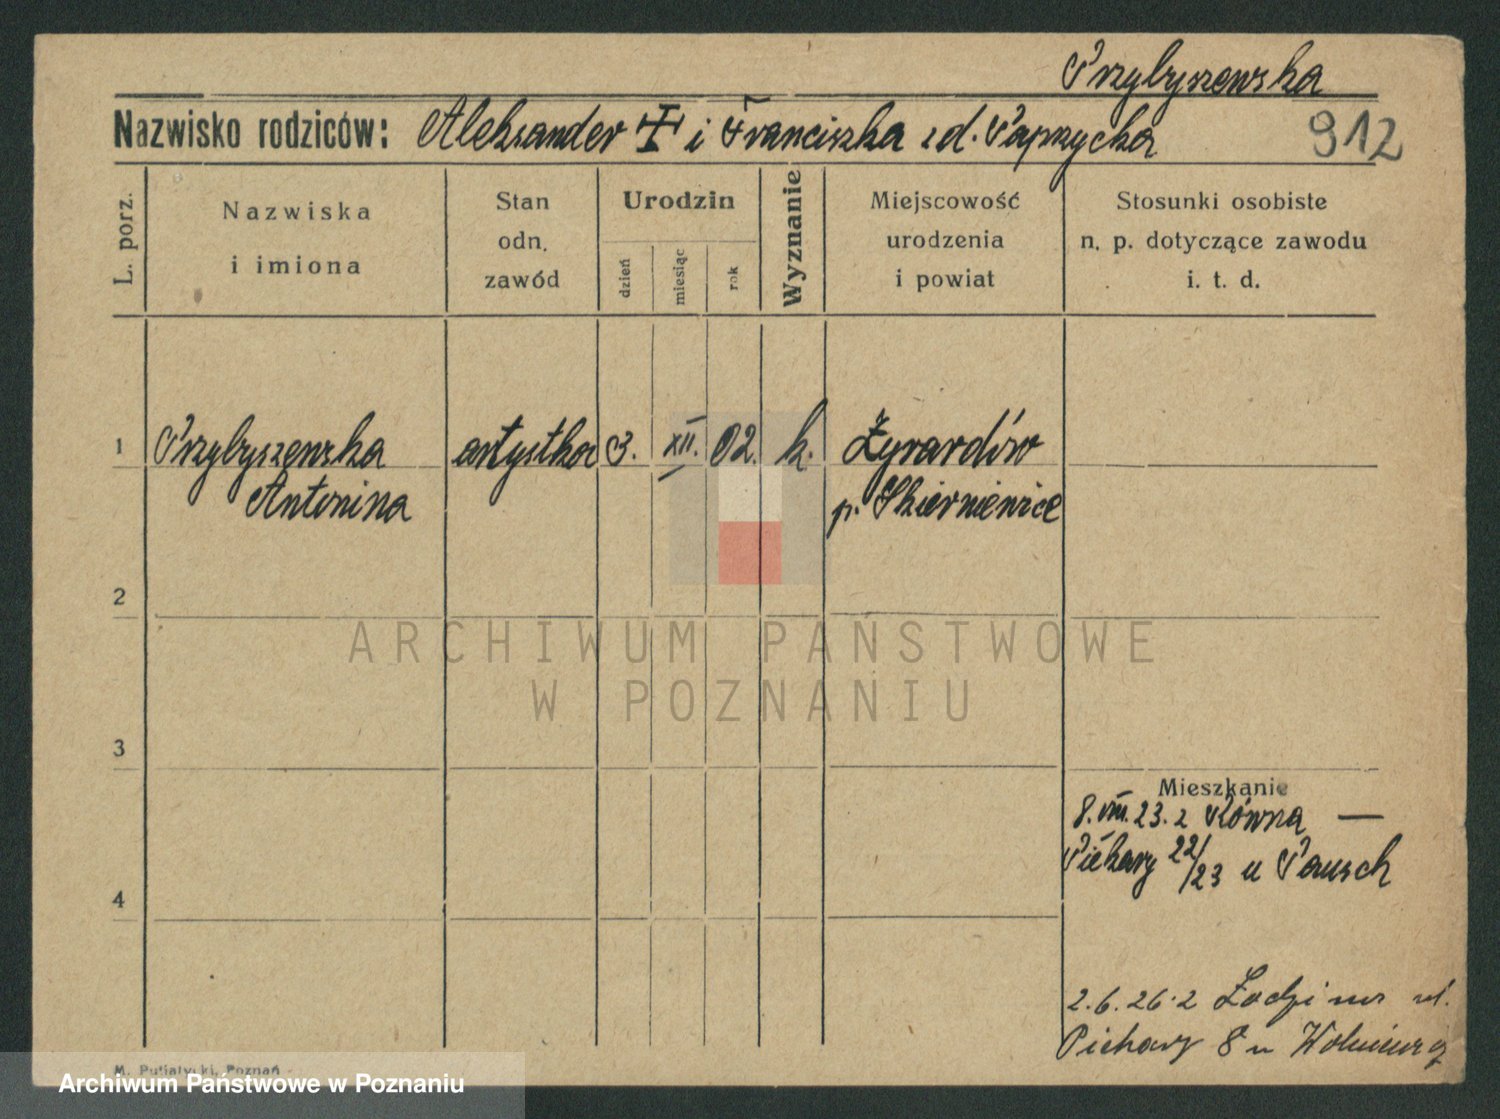 Przybyszewska
Nazwisko rodziców: Aleksander † i Franciszka z d. Paprzycka 912
L. porz.
Nazwiska
i imiona
Stan
odn.
zawód
Urodzin
dzień
miesiąc
rok
Wyznanie
Miejscowość
urodzenia
i powiat
Stosunki osobiste
n. p. dotyczące zawodu
i. t. d.
1 Przybyszewska artystka 3. XII. 02. k. Żyrardów
Antonina p. Skierniewice
2
ARCHIWUM PAŃSTWOWE
W POZNANIU
3
Mieszkanie
8. VIII. 23. z Równa —
Piekary 22/23 u Pausch
4
2.6.26. z Łodzi na ul.
Piekary 8 u
M. Putiatycki, Poznań
Archiwum Państwowe w Poznaniu